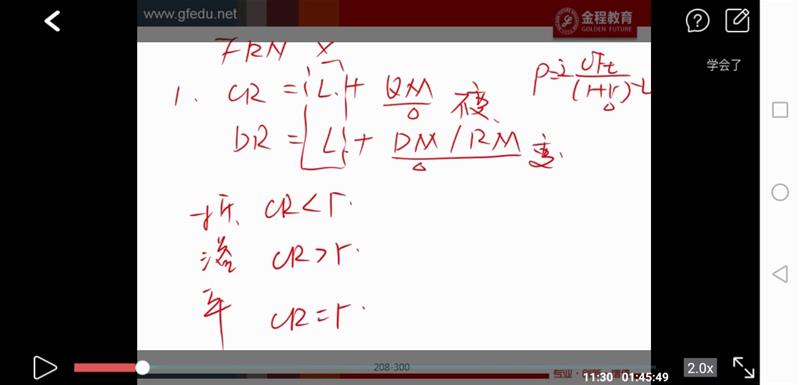 www.gfedu.net
金程教育
GOLDEN FUTURE
学会了
FRN X
1. CR = L + QM 不变
DR = L + DM / RM 变
折 CR < r
溢 CR > r
平 CR = r
208-300
11:30 01:45:49
2.0x